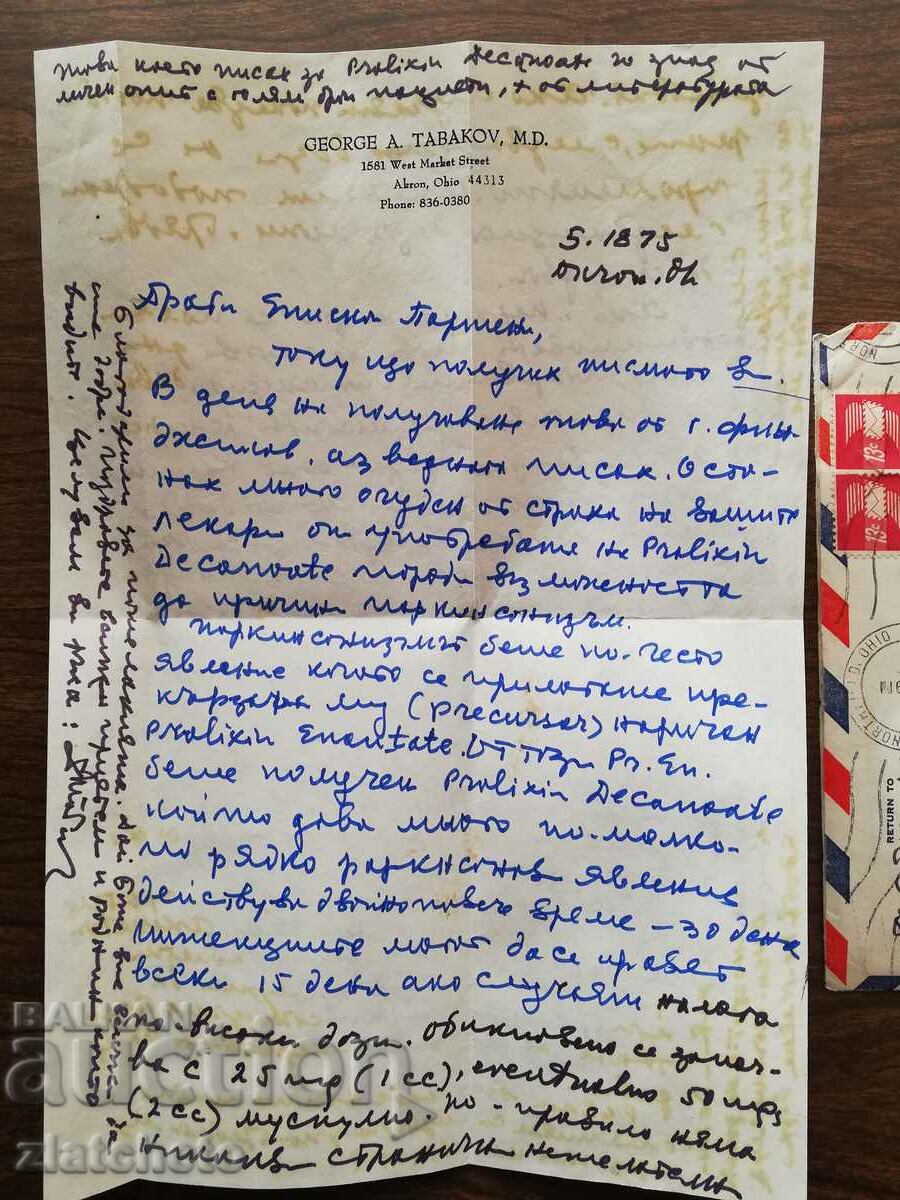 това което писах за Prolixin Decanoate го зная от
личен опит с голям брой пациенти, + от литературата
GEORGE A. TABAKOV, M.D.
1581 West Market Street
Akron, Ohio 44313
Phone: 836-0380
5.1875
Akron. Oh
Драги Епископ Партени,
току що получих писмото Ви.
В деня на получаване това от г.
аз веднага писах. Оста-
нах много огудчен от страха на вашите
лекари от употребата на Prolixin
Decanoate поради възможността
да причини паркинсонизъм.
Паркинсонизмът беше по-често
явление когато се прилагаше пре-
му (precursor) наричан
Prolixin Enantate. От Pr. En.
беше получен Prolixin Decanoate
който дава много по-малко-
по рядко паркинсонов явления
действува двойно повече време – 30 дена
Инжекциите могат да се правят
всеки 15 дена ако случаят налага
по-високи дози. Обикновено се започ-
ва с 25 mg (1 cc), евентуално 50 mg
(2 cc) мускулно. По-правило няма
никакви странични нежелателни
Благодарим за пожеланията. Дай Боже вие да
сте добре. Поздравете всички приятели и роднини които
видите. Целувам ви ръка:
13c
13c
NORTH
OHIO
RETURN TO
BALKAN
auction
zlatchete